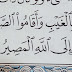 ٱلْغَيْبِ وَأَقَامُوا۟ ٱلصَّ
إِلَى ٱللَّهِ ٱلْمَصِيرُ